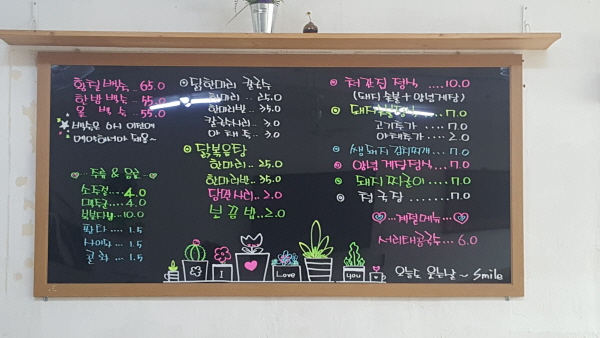 황칠백숙.. 65.0
한방백숙.. 55.0
옻 백숙.. 55.0
백숙은 1시간 이전에
예약하셔야 돼용~
...주류 & 음료...
소주.... 4.0
맥주.... 4.0
복분자.. 10.0
환타.... 1.5
사이다.. 1.5
콜라... 1.5
닭한마리 칼국수
한마리.... 25.0
한마리반... 35.0
칼국수사리... 3.0
야채 추.. 3.0
닭볶음탕
한마리.... 25.0
한마리반... 35.0
당면사리.. 2.0
볶음밥.. 2.0
처갓집 정식 ....10.0
(돼지숯불+양념게장)
돼지숯불정식 ....7.0
고기추가 ....7.0
야채추가 ....2.0
생돼지 김치찌개 ....7.0
양념게장정식....7.0
돼지 짜글이.....7.0
청국장.......7.0
...계절메뉴...
서리태콩국수... 6.0
I
Love
you
오늘도 웃는날~ Smile